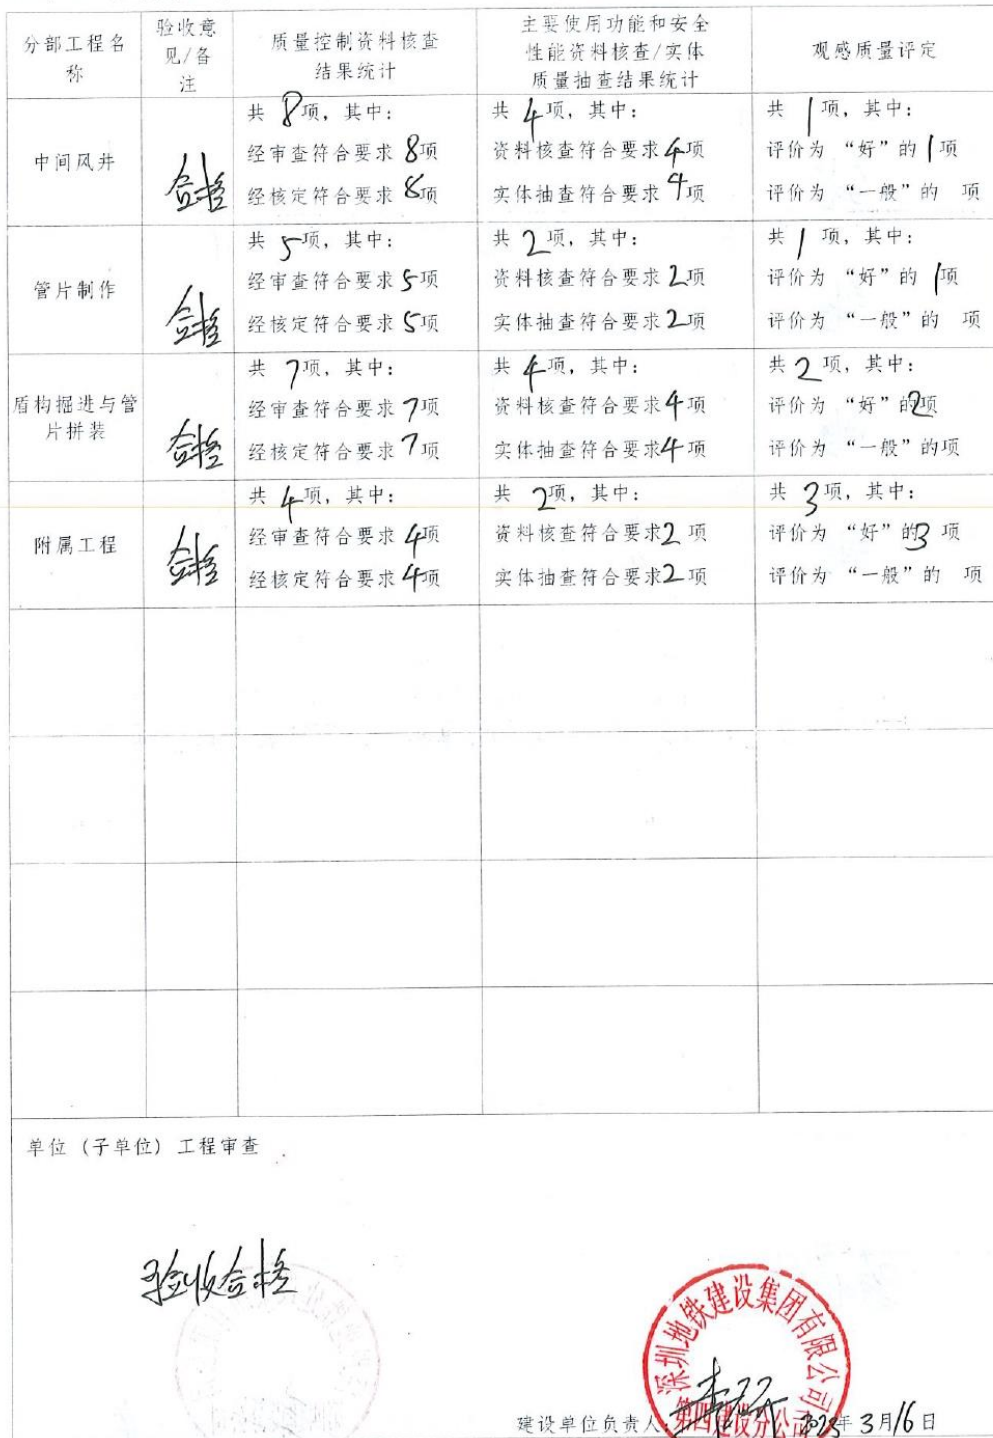 分部工程名
称
验收意
见/备
注
质量控制资料核查
结果统计
主要使用功能和安全
性能资料核查/实体
质量抽查结果统计
观感质量评定
中间风井
合格
共 8项，其中：
经审查符合要求 8项
经核定符合要求 8项
共 4项，其中：
资料核查符合要求4项
实体抽查符合要求 4项
共 1项，其中：
评价为 “好”的1项
评价为 “一般”的 项
管片制作
合格
共 5项，其中：
经审查符合要求 5项
经核定符合要求 5项
共 2项，其中：
资料核查符合要求 2项
实体抽查符合要求2项
共 1 项，其中：
评价为 “好”的 1项
评价为 “一般”的 项
盾构掘进与管
片拼装
合格
共 7项，其中：
经审查符合要求 7项
经核定符合要求 7项
共 4项，其中：
资料核查符合要求4项
实体抽查符合要求4项
共 2项，其中：
评价为 “好”的2项
评价为 “一般”的项
附属工程
合格
共 4项，其中：
经审查符合要求 4项
经核定符合要求 4项
共 2项，其中：
资料核查符合要求2 项
实体抽查符合要求2 项
共 3项，其中：
评价为 “好”的3 项
评价为 “一般”的 项
单位（子单位）工程审查
验收合格
深圳地铁建设集团有限公司
第四建设分公司
建设单位负责人： 2023年 3月16日